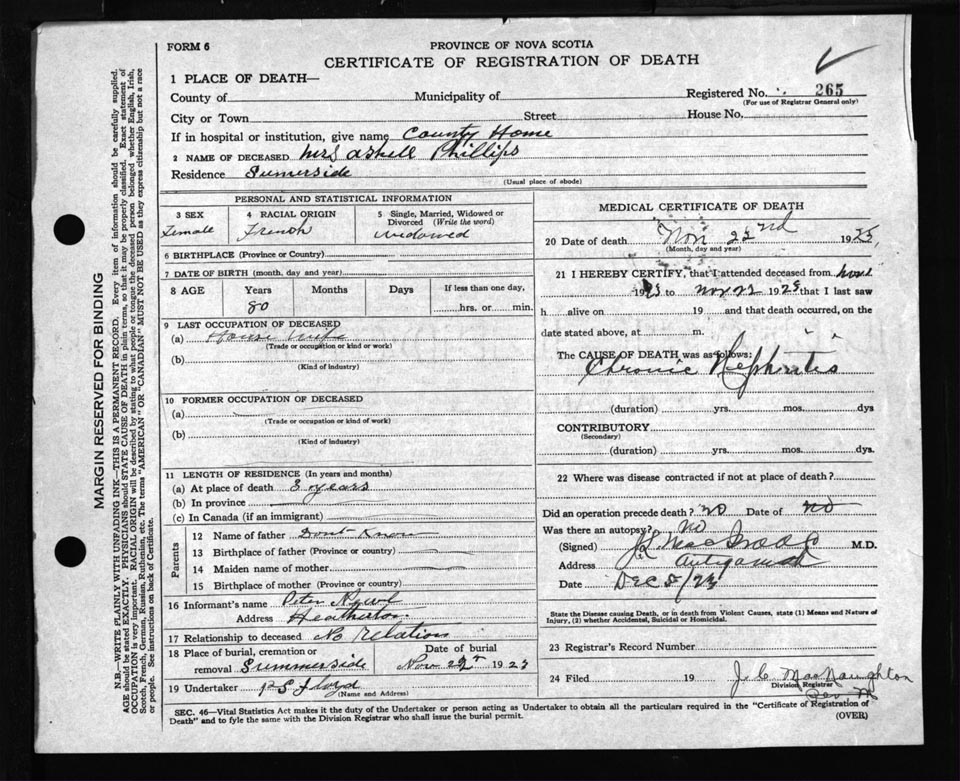 FORM 6
PROVINCE OF NOVA SCOTIA
CERTIFICATE OF REGISTRATION OF DEATH
1 PLACE OF DEATH—
County of Municipality of Registered No. 265
(For use of Registrar General only)
City or Town Street House No.
If in hospital or institution, give name County Home
2 NAME OF DECEASED Mrs Phillips
Residence Sumerside
(Usual place of abode)
PERSONAL AND STATISTICAL INFORMATION
3 SEX 4 RACIAL ORIGIN 5 Single, Married, Widowed or
Divorced (Write the word)
Female French widowed
6 BIRTHPLACE (Province or Country)
7 DATE OF BIRTH (month, day and year)
8 AGE Years Months Days If less than one day,
80 hrs. or min.
9 LAST OCCUPATION OF DECEASED
(a) House wife
(Trade or occupation or kind or work)
(b)
(Kind of industry)
10 FORMER OCCUPATION OF DECEASED
(a)
(Trade or occupation or kind of work)
(b)
(Kind of industry)
11 LENGTH OF RESIDENCE (In years and months)
(a) At place of death 3 years
(b) In province
(c) In Canada (if an immigrant)
Parents
12 Name of father Dont Know
13 Birthplace of father (Province or country)
14 Maiden name of mother
15 Birthplace of mother (Province or country)
16 Informant's name Peter
Address Heatherton
17 Relationship to deceased No relation
18 Place of burial, cremation or Date of burial
removal Summerside Nov 192
19 Undertaker Floyd
(Name and Address)
MEDICAL CERTIFICATE OF DEATH
20 Date of death Nov 22nd 19
(Month, day and year)
21 I HEREBY CERTIFY, that I attended deceased from
19 to Nov 22 192 that I last saw
h alive on 19 and that death occurred, on the
date stated above, at m.
The CAUSE OF DEATH was as follows:
Chronic Nephritis
(duration) yrs. mos. dys
CONTRIBUTORY
(Secondary)
(duration) yrs. mos. dys.
22 Where was disease contracted if not at place of death?
Did an operation precede death? No Date of No
Was there an autopsy? No
(Signed) M.D.
Address Antigonish
Date Dec
State the Disease causing Death, or in death from Violent Causes, state (1) Means and Nature of
Injury, (2) whether Accidental, Suicidal or Homicidal.
23 Registrar's Record Number
24 Filed 19 J C MacNaughton
Division Registrar
SEC. 46—Vital Statistics Act makes it the duty of the Undertaker or person acting as Undertaker to obtain all the particulars required in the "Certificate of Registration of
Death" and to fyle the same with the Division Registrar who shall issue the burial permit.
(OVER)
MARGIN RESERVED FOR BINDING
N.B.—WRITE PLAINLY WITH UNFADING INK—THIS IS A PERMANENT RECORD. Every item of information should be carefully supplied.
AGE should be stated EXACTLY. PHYSICIANS should STATE CAUSE OF DEATH in plain terms, so that it may be properly classified. Exact statement of
OCCUPATION is very important. RACIAL ORIGIN will be described by stating to what people or tongue the deceased person belonged whether English, Irish,
Scotch, French, German, Russian, Ruthenian, etc. The terms "AMERICAN" or "CANADIAN" MUST NOT BE USED as they express citizenship but not a race
or people. See instructions on back of Certificate.